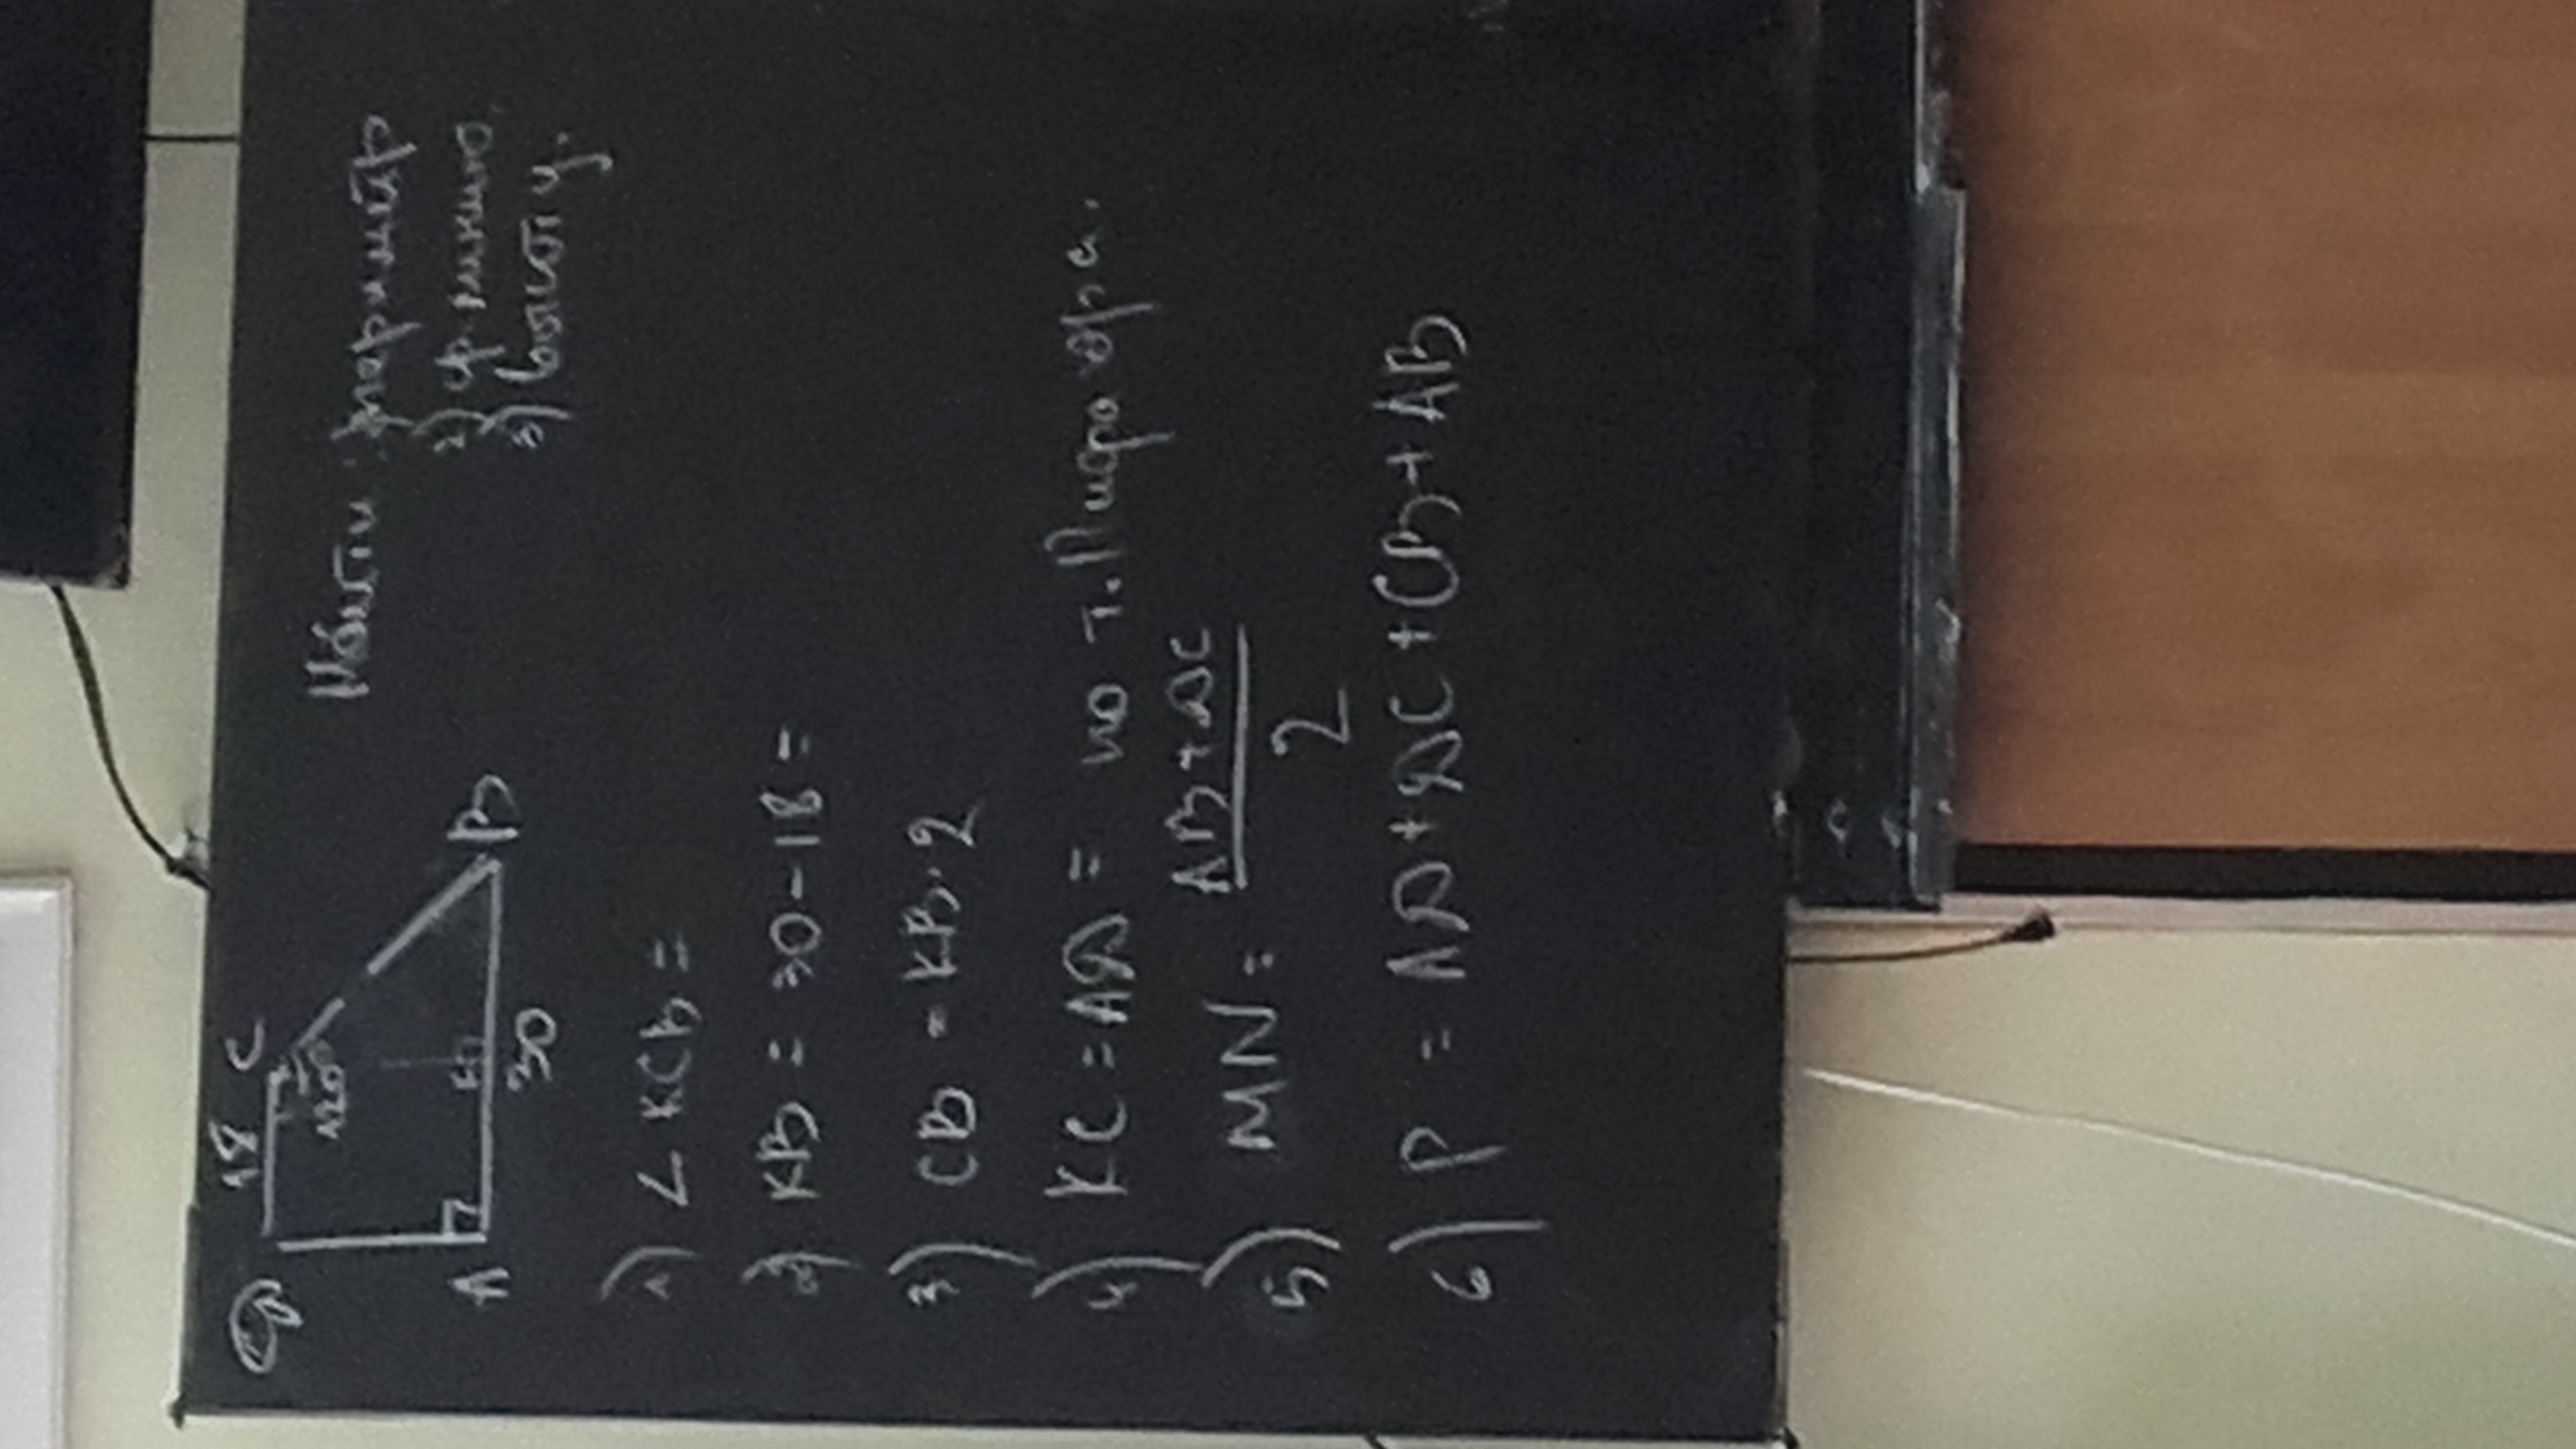 Найти: 1) периметр
2) ср. линию.
3) высоту.
D 18 C
120°
A K B
30
1) ∠KCB =
2) KB = 30-18 =
3) CB = KB·2
4) KC = AD = по т. Пифагора.
5) MN = AB+DC / 2
6) P = AD+DC+CB+AB